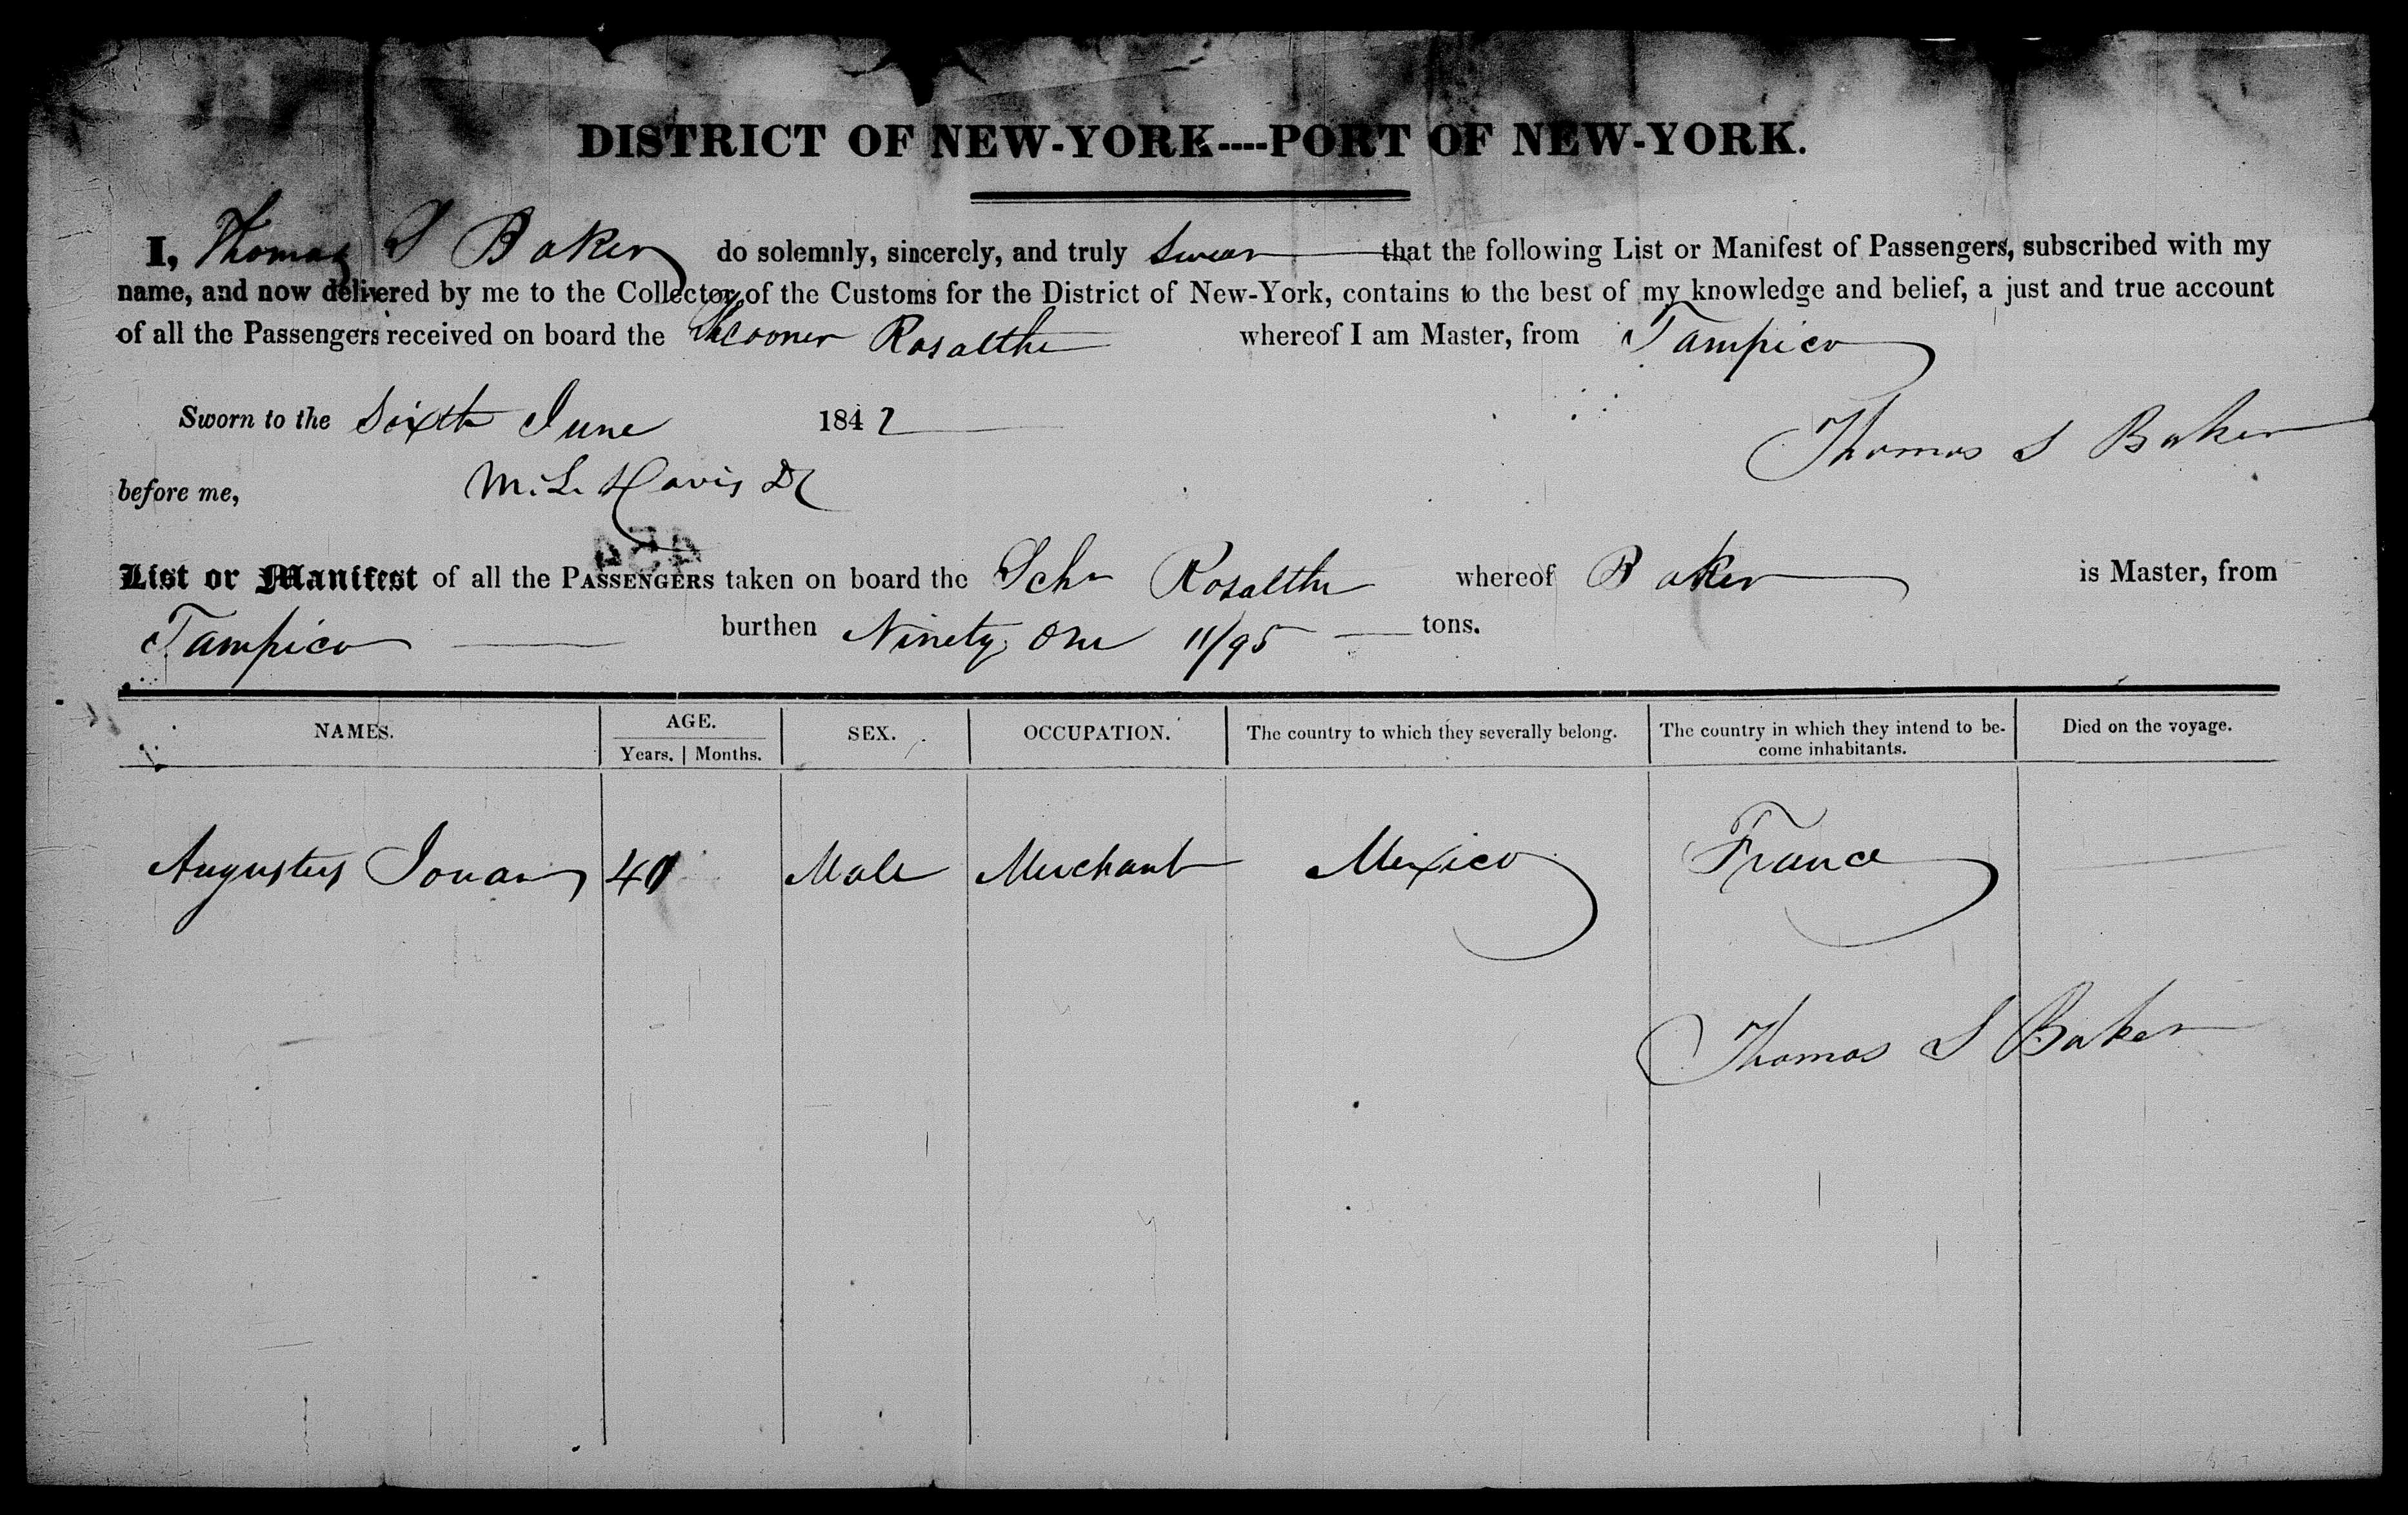 DISTRICT OF NEW-YORK----PORT OF NEW-YORK.
I, Thomas S Baker do solemnly, sincerely, and truly swear that the following List or Manifest of Passengers, subscribed with my
name, and now delivered by me to the Collector of the Customs for the District of New-York, contains to the best of my knowledge and belief, a just and true account
of all the Passengers received on board the Schooner Rosalthe whereof I am Master, from Tampico
Sworn to the Sixth June 1842
Thomas S Baker
before me, M. L. Davis
454
List or Manifest of all the PASSENGERS taken on board the Schr Rosalthe whereof Baker is Master, from
Tampico burthen Ninety One 11/95 tons.
NAMES. AGE. Years. Months. SEX. OCCUPATION. The country to which they severally belong. The country in which they intend to be-
come inhabitants. Died on the voyage.
Augustus Jouan 40 Male Merchant Mexico France
Thomas S Baker